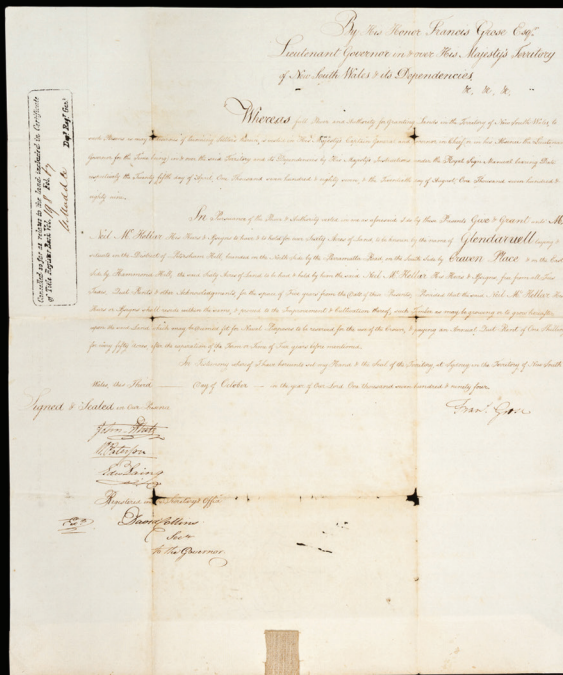 By His Honor Francis Grose Esqr.
Lieutenant Governor in & over His Majesty's Territory
of New South Wales & its Dependencies,
&c, &c, &c.
Whereas full Power and Authority for Granting Lands in the Territory of New South Wales, to
such Person as may be desirous of becoming Settlers therein, is vested in His Majesty's Captain General and Governor in Chief or in his Absence the Lieutenant
Governor for the Time being, in & over the said Territory and its Dependencies by His Majesty's Instructions under the Royal Sign Manual bearing Date
respectively the Twenty fifth day of April, One Thousand seven hundred & eighty seven, & the Twentieth day of August, One Thousand seven hundred &
eighty nine.
In Pursuance of the Power & Authority vested in me as aforesaid I do by these Presents Give & Grant unto Mr.
Neil McKellar His Heirs & Assigns to have & to hold for ever Sixty Acres of Land to be known by the name of Glendaruell laying &
situate in the District of Petersham Hill, bounded on the North Side by the Parramatta Road, on the South Side by Place & on the East
Side by Hammond Hill, the said Sixty Acres of Land to be had & held by him the said Neil McKellar His Heirs & Assigns, free from all Fees
Taxes, Quit Rents & other Acknowledgments for the space of Five years from the Date of these Presents, Provided that the said Neil McKellar His
Heirs or Assigns shall reside within the same, & proceed to the Improvement & Cultivation thereof, such Timber as may be growing or to grow hereafter
upon the said Land, which may be deemed fit for Naval Purposes to be reserved for the use of the Crown, & paying an Annual Quit Rent of One Shilling
for every fifty Acres after the expiration of the Term or Time of Five years before mentioned.
In Testimony whereof I have hereunto set my Hand & the Seal of the Territory, at Sydney in the Territory of New South
Wales, this Third Day of October in the year of our Lord One thousand seven hundred & ninety four.
Signed & Sealed in our Presence
Frans. Grose
John White
W. Paterson
Edw. Laing
Registered in the Secretary's Office
David Collins
Secy.
to the Governor
Cancelled so far as relates to the land included in Certificate
of Title Register Book Vol. 198 Fol. 67
Depy. Regr. Genl.